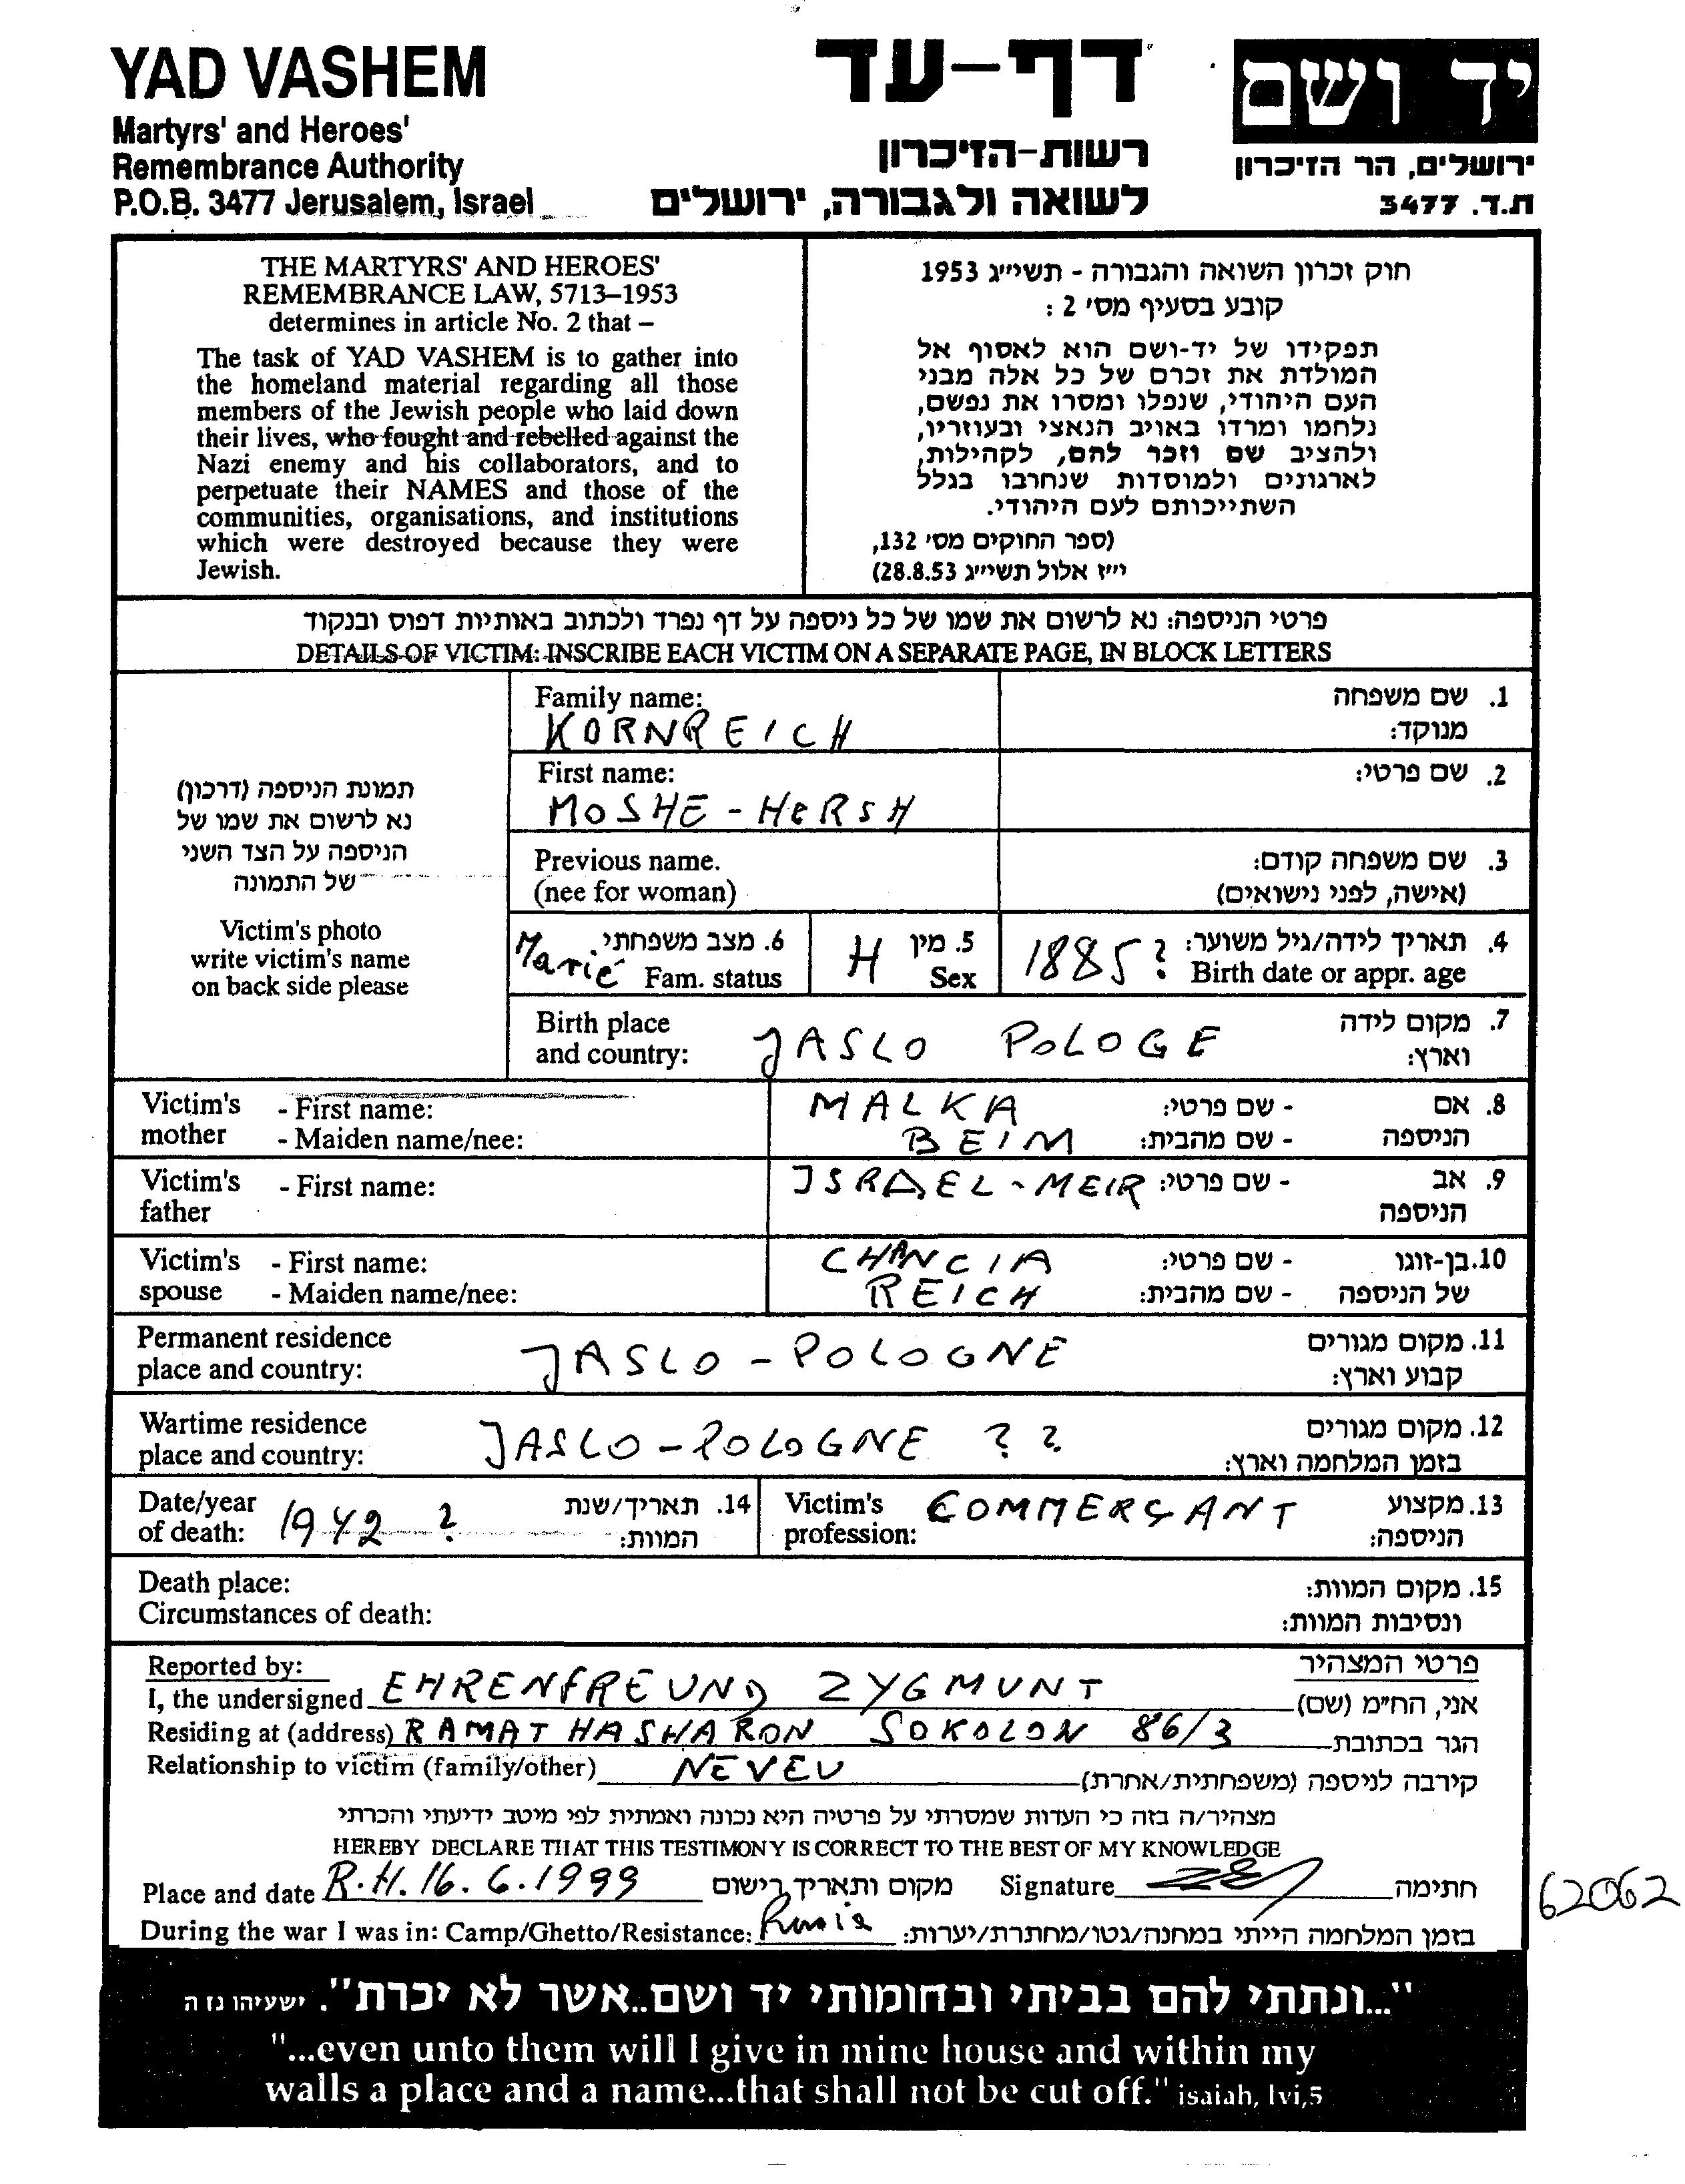 YAD VASHEM
Martyrs' and Heroes'
Remembrance Authority
P.O.B. 3477 Jerusalem, Israel
דף-עד
רשות-הזיכרון
לשואה ולגבורה, ירושלים
יד ושם
ירושלים, הר הזיכרון
ת.ד. 3477
THE MARTYRS' AND HEROES'
REMEMBRANCE LAW, 5713–1953
determines in article No. 2 that –
The task of YAD VASHEM is to gather into
the homeland material regarding all those
members of the Jewish people who laid down
their lives, who fought and rebelled against the
Nazi enemy and his collaborators, and to
perpetuate their NAMES and those of the
communities, organisations, and institutions
which were destroyed because they were
Jewish.
חוק זכרון השואה והגבורה - תשי״ג 1953
קובע בסעיף מס' 2 :
תפקידו של יד-ושם הוא לאסוף אל
המולדת את זכרם של כל אלה מבני
העם היהודי, שנפלו ומסרו את נפשם,
נלחמו ומרדו באויב הנאצי ובעוזריו,
ולהציב שם וזכר להם, לקהילות,
לארגונים ולמוסדות שנחרבו בגלל
השתייכותם לעם היהודי.
(ספר החוקים מס' 132,
י״ז אלול תשי״ג 28.8.53)
פרטי הניספה: נא לרשום את שמו של כל ניספה על דף נפרד ולכתוב באותיות דפוס ובנקוד
DETAILS OF VICTIM: INSCRIBE EACH VICTIM ON A SEPARATE PAGE, IN BLOCK LETTERS
תמונת הניספה (דרכון)
נא לרשום את שמו של
הניספה על הצד השני
של התמונה
Victim's photo
write victim's name
on back side please
Family name: 1. שם משפחה
KORNREICH מנוקד:
First name: 2. שם פרטי:
MOSHE - HERSH
Previous name. 3. שם משפחה קודם:
(nee for woman) (אישה, לפני נישואים)
Marié 6. מצב משפחתי H 5. מין 1885? 4. תאריך לידה/גיל משוער:
Fam. status Sex Birth date or appr. age
Birth place 7. מקום לידה
and country: JASLO POLOGE וארץ:
Victim's - First name: MALKA - שם פרטי: 8. אם
mother - Maiden name/nee: BEIM - שם מהבית: הניספה
Victim's - First name: ISRAEL-MEIR - שם פרטי: 9. אב
father הניספה
Victim's - First name: CHANCIA - שם פרטי: 10. בן-זוגו
spouse - Maiden name/nee: REICH - שם מהבית: של הניספה
Permanent residence 11. מקום מגורים
place and country: JASLO - POLOGNE קבוע וארץ:
Wartime residence 12. מקום מגורים
place and country: JASLO - POLOGNE ? ? בזמן המלחמה וארץ:
Date/year 14. תאריך/שנת Victim's COMMERÇANT 13. מקצוע
of death: 1942 ? המוות: profession: הניספה:
Death place: 15. מקום המוות:
Circumstances of death: ונסיבות המוות:
Reported by: פרטי המצהיר
I, the undersigned EHRENFREUND ZYGMUNT אני, הח״מ (שם)
Residing at (address) RAMAT HASHARON SOKOLON 86/3 הגר בכתובת
Relationship to victim (family/other) NEVEU קירבה לניספה (משפחתית/אחרת)
מצהיר/ה בזה כי העדות שמסרתי על פרטיה היא נכונה ואמתית לפי מיטב ידיעתי והכרתי
HEREBY DECLARE THAT THIS TESTIMONY IS CORRECT TO THE BEST OF MY KNOWLEDGE
Place and date R.H. 16.6.1999 מקום ותאריך רישום Signature חתימה
62062
During the war I was in: Camp/Ghetto/Resistance: Russia בזמן המלחמה הייתי במחנה/גטו/מחתרת/יערות:
"...ונתתי להם בביתי ובחומותי יד ושם..אשר לא יכרת". ישעיהו נו ה
"...even unto them will I give in mine house and within my
walls a place and a name...that shall not be cut off." isaiah, lvi,5